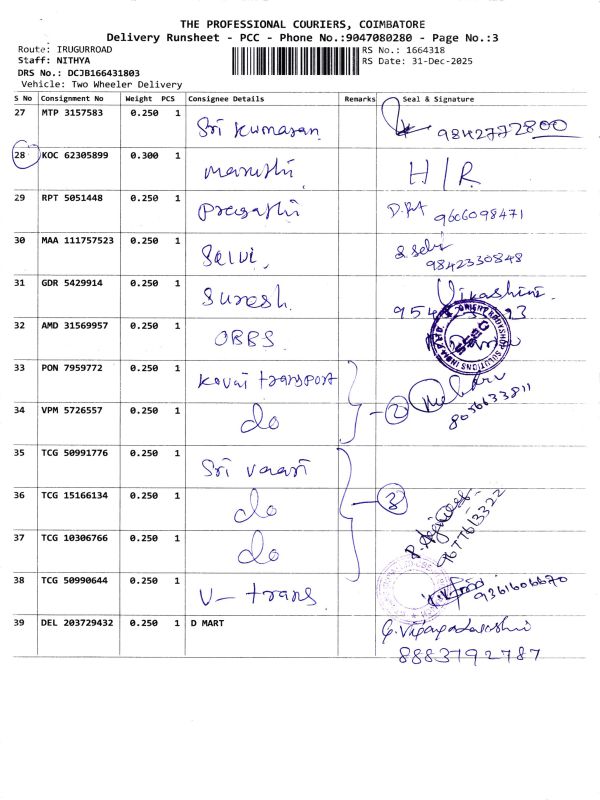 THE PROFESSIONAL COURIERS, COIMBATORE
Delivery Runsheet - PCC - Phone No.:9047080280 - Page No.:3
Route: IRUGURROAD
Staff: NITHYA
DRS No.: DCJB166431803
Vehicle: Two Wheeler Delivery
RS No.: 1664318
RS Date: 31-Dec-2025
S No Consignment No Weight PCS Consignee Details Remarks Seal & Signature
27 MTP 3157583 0.250 1 Sri Kumaran 9842772800
28 KOC 62305899 0.300 1 Maruthi H/R
29 RPT 5051448 0.250 1 Pragathi 9606098471
30 MAA 111757523 0.250 1 Selvi S. Selvi 9842330848
31 GDR 5429914 0.250 1 Suresh
32 AMD 31569957 0.250 1 OBBS
ORIENT BODYSHOP SOLUTIONS INDIA
33 PON 7959772 0.250 1 Kovai transport
34 VPM 5726557 0.250 1 do 2 8056633811
35 TCG 50991776 0.250 1 Sri
36 TCG 15166134 0.250 1 do 3
37 TCG 10306766 0.250 1 do 9677613322
38 TCG 50990644 0.250 1 V-trans 9361606670
39 DEL 203729432 0.250 1 D MART
8883792787